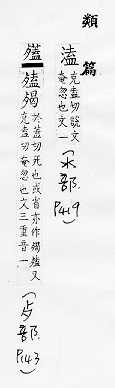 類篇
溘 克盍切說文
奄忽也文一 (水部 P419)
於蓋切死也或省亦作
又
克盍切奄忽也文三重音一
(歹部 P143)